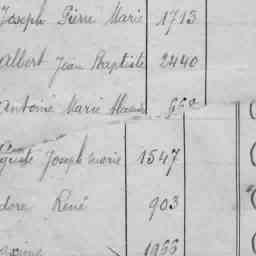 Joseph Pierre Marie 1713
Albert Jean Baptiste 2440
Antoine Marie
Joseph Marie 1547
René 903
1966